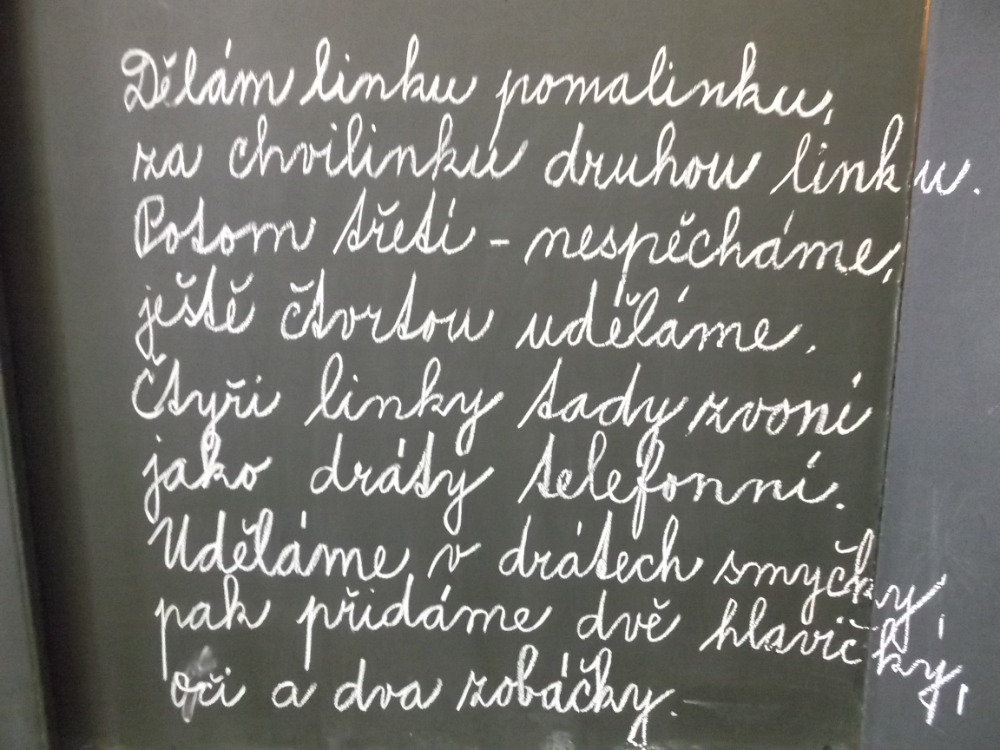 Dělám linku pomalinku,
za chvilinku druhou linku.
Potom třetí - nespěcháme,
ještě čtvrtou uděláme.
Čtyři linky tady zvoní
jako dráty telefonní.
Uděláme v drátech smyčky,
pak přidáme dvě hlavičky,
oči a dva zobáčky.